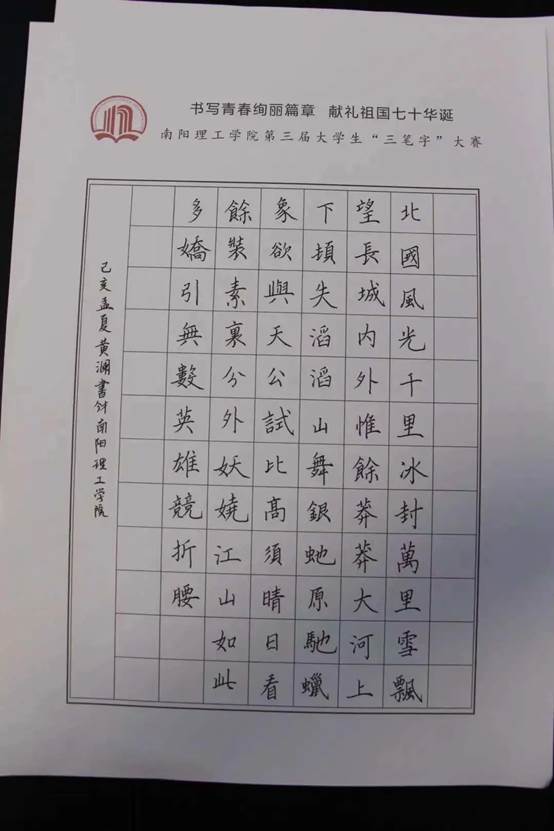 书写青春绚丽篇章 献礼祖国七十华诞
南阳理工学院第三届大学生“三笔字”大赛
北國風光千里冰封萬里雪飄
望長城内外惟餘莽莽大河上
下頓失滔滔山舞銀虵原馳蠟
象欲與天公試比高須晴日看
餘裝素裹分外妖娆江山如此
多嬌引無數英雄競折腰
己亥孟夏黄澜書於南阳理工学院